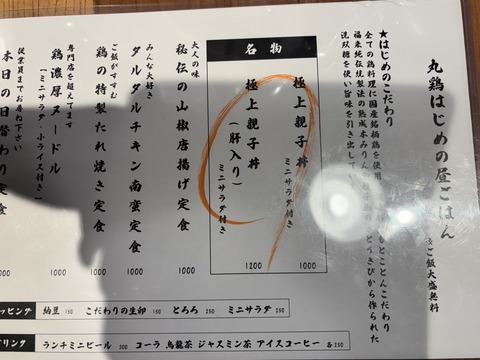 丸鶏はじめの昼ごはん
※ご飯大盛無料
★はじめのこだわり
全ての鶏料理に国産銘柄鶏を使用
もとことんこだわり
福来純伝統製法の熟成本みりん
とうきびから作られた
洗双糖を使い旨味を引き出してい
名物
極上親子丼
ミニサラダ付き
1000
極上親子丼
(肝入り)
ミニサラダ付き
1200
大人の味
秘伝の山椒唐揚げ定食
1000
みんな大好き
タルタルチキン南蛮定食
1000
ご飯がすすむ
鶏の特製だれ焼き定食
1000
専門店を超えてます
鶏濃厚ヌードル
(ミニサラダ・小ライス付き)
1000
従業員までお尋ね下さい
本日の日替わり定食
000
ッピング
納豆 150
こだわりの生卵 150
とろろ 250
ミニサラダ 250
リンク
ランチミニビール 300
コーラ 烏龍茶 ジャスミン茶 アイスコーヒー 各250